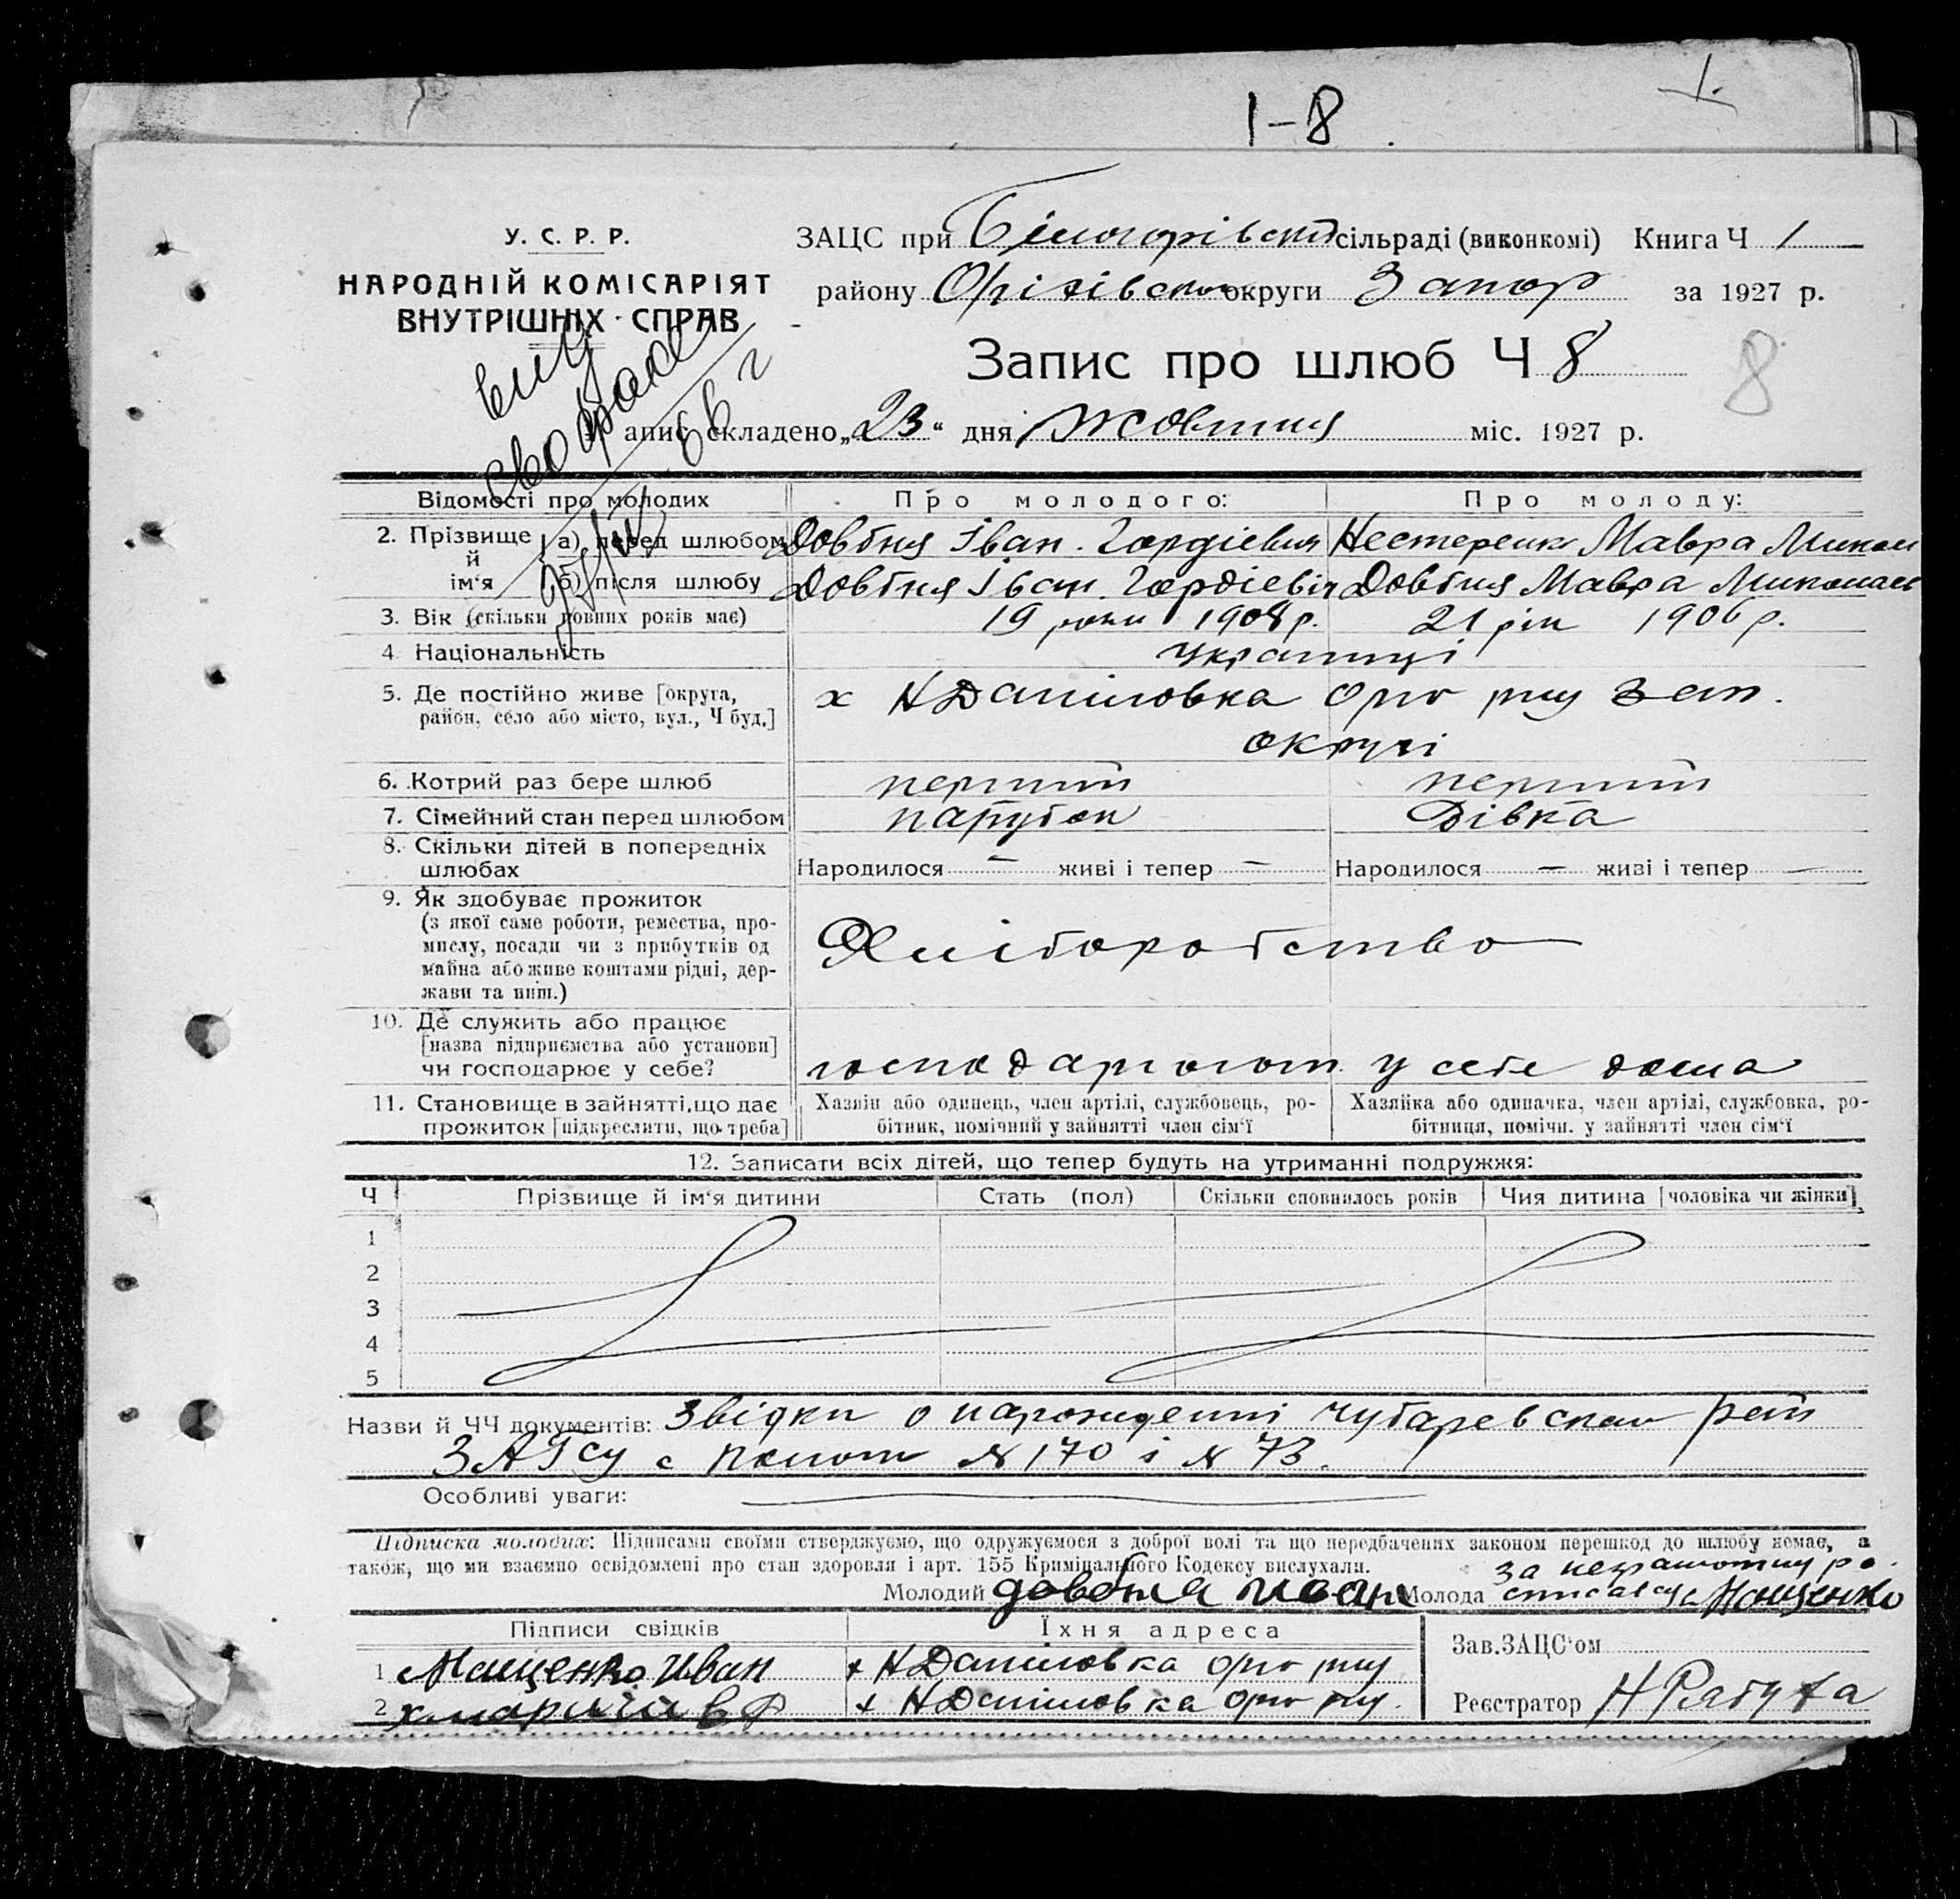 1-8.
1.
У. С. Р. Р.
НАРОДНІЙ КОМІСАРІЯТ
ВНУТРІШНІХ СПРАВ
ЗАЦС при Білогорівскій сільраді (виконкомі) Книга Ч 1
району Оріхівском округи Запор за 1927 р.
Запис про шлюб Ч 8
8
апис складено „23“ дня Жовтня міс. 1927 р.
Відомості про молодих Про молодого: Про молоду:
2. Прізвище й ім‘я
а) перед шлюбом Довбня Іван. Гордієвич Нестеренк Мавра Микол
б) після шлюбу Довбня Іван. Гордієвіч Довбня Мавра Миколаев
3. Вік (скільки повних років має) 19 роки 1908 р. 21 рік 1906 р.
4 Національність українці
5. Де постійно живе [округа, район, село або місто, вул., Ч буд.] х Н Даніловка Оріх р-ну Зап.
округи
6. Котрий раз бере шлюб перший перший
7. Сімейний стан перед шлюбом парубок Дівка
8. Скільки дітей в попередніх шлюбах Народилося — живі і тепер — Народилося — живі і тепер —
9. Як здобуває прожиток
(з якої саме роботи, ремества, про-
мислу, посади чи з прибутків од
майна або живе коштами рідні, дер-
жави та инш.)
Хліборобство
10. Де служить або працює
[назва підприємства або установи]
чи господарює у себе?
господарюют у себе дома
11. Становище в зайнятті, що дає
прожиток [підкреслити, що треба]
Хазяїн або одинець, член артілі, службовець, ро-
бітник, помічний у зайнятті член сім‘ї
Хазяйка або одиначка, член артілі, службовка, ро-
бітниця, помічн. у зайнятті член сім‘ї
12. Записати всіх дітей, що тепер будуть на утриманні подружжя:
Ч Прізвище й ім‘я дитини Стать (пол) Скільки сповнилось років Чия дитина [чоловіка чи жінки]
1
2
3
4
5
Назви й ЧЧ документів: Звідки о нарожденні Чубаревском рай
ЗАГСу с N 170 і N 73.
Особливі уваги:
Підписка молодих: Підписами своїми стверджуємо, що одружуємося з доброї волі та що передбачених законом перешкод до шлюбу немає, а
також, що ми взаємно освідомлені про стан здоровля і арт. 155 Криміцального Кодексу вислухали.
за неграмотну ро.
Молодий довбня иван Молода списався Мащенко
Підписи свідків Їхня адреса
Зав. ЗАЦС‘ом
1 Мащенко Иван х Н Даніловка Оріх р-ну
2 х Н Даніловка Оріх р-ну.
Реєстратор Н Рябуха